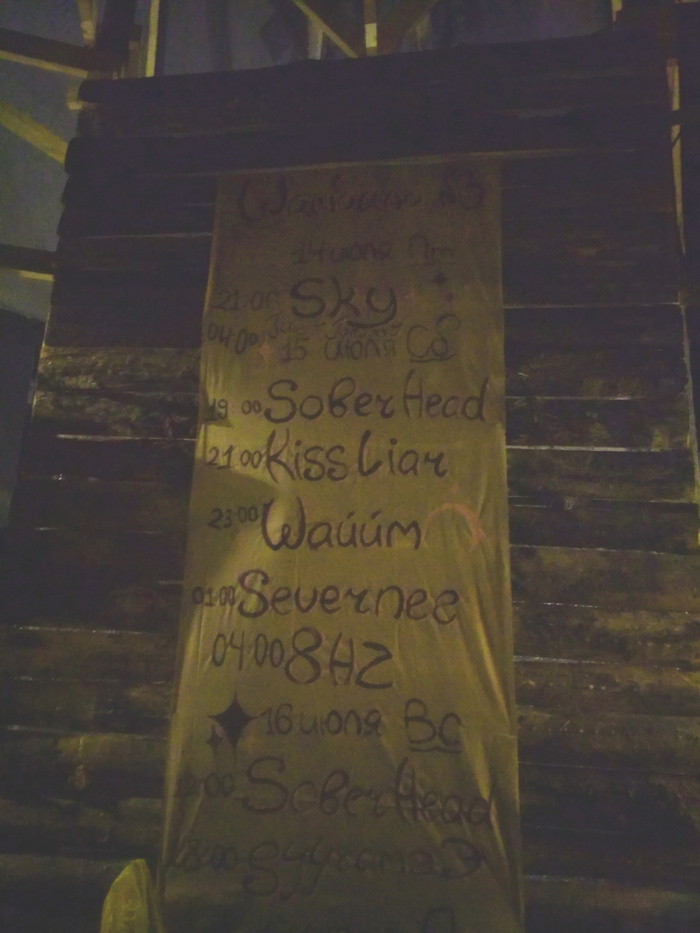 14 июля Пт
21:00 Sky
04:00
15 июля Сб
19:00 Sober Head
21:00 Kiss Liar
23:00 Waúúm
01:00 Severnee
04:00 8HZ
16 июля Вс
Sober Head